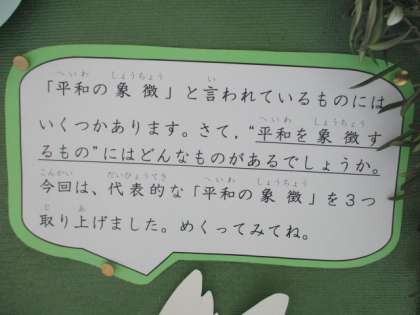 「平和の象徴」と言われているものには
いくつかあります。さて，“平和を象徴す
るもの”にはどんなものがあるでしょうか。
今回は、代表的な「平和の象徴」を３つ
取り上げました。めくってみてね。